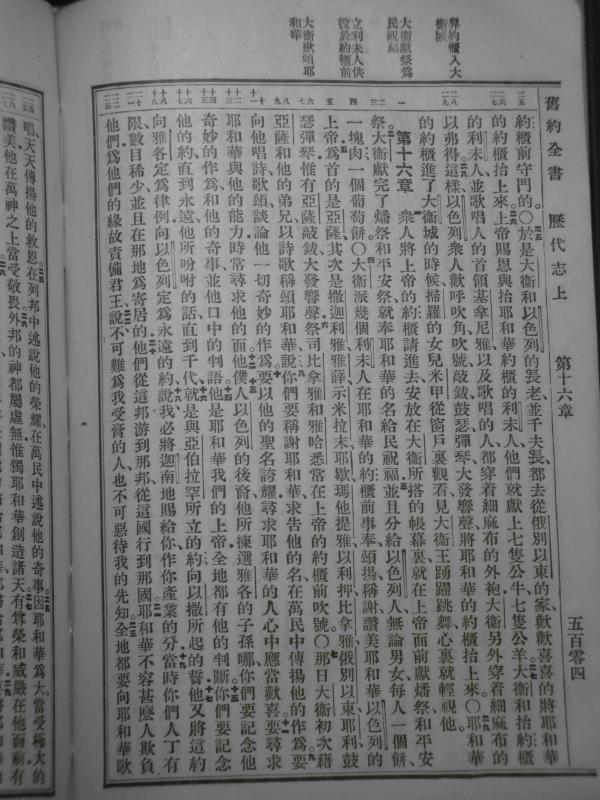 舊約全書 歷代志上 第十六章 五百零四
舁約櫃入大
衞城
大衞獻祭爲
民祝福
立利未人供
役於約櫃前
大衞獻頌耶
和華
約櫃前守門的〇於是大衞和以色列的長老並千夫長都去從俄別以東的家歡歡喜喜的將耶和華
的約櫃抬上來上帝賜恩與抬耶和華約櫃的利未人他們就獻上七隻公牛七隻公羊大衞和抬約櫃
的利未人並歌唱人的首領基拿尼雅以及歌唱的人都穿着細麻布的外袍大衞另外穿着細麻布的
以弗得這樣以色列衆人歡呼吹角吹號敲鈸鼓瑟彈琴大發響聲將耶和華的約櫃抬上來〇耶和華
的約櫃進了大衞城的時候掃羅的女兒米甲從窗戶裏觀看見大衞王踴躍跳舞心裏就輕視他
第十六章 衆人將上帝的約櫃請進去安放在大衞所搭的帳幕裏就在上帝面前獻燔祭和平安
祭大衞獻完了燔祭和平安祭就奉耶和華的名給民祝福並且分給以色列人無論男女每人一個餅
一塊肉一個葡萄餅〇大衞派幾個利未人在耶和華的約櫃前事奉頌揚稱謝讚美耶和華以色列的
上帝爲首的是亞薩其次是撒迦利雅雅薛示米拉末耶歇瑪他提雅以利押比拿雅俄別以東耶利鼓
瑟彈琴惟有亞薩敲鈸大發響聲祭司比拿雅和雅哈悉常在上帝的約櫃前吹號〇那日大衞初次藉
亞薩和他的弟兄以詩歌稱頌耶和華說你們要稱謝耶和華求告他的名在萬民中傳揚他的作爲要
向他唱詩歌頌談論他一切奇妙的作爲要以他的聖名誇耀尋求耶和華的人心中應當歡喜要尋求
耶和華與他的能力時常尋求他的面他僕人以色列的後裔他所揀選雅各的子孫哪你們要記念他
奇妙的作爲和他的奇事並他口中的判語他是耶和華我們的上帝全地都有他的判斷你們要記念
他的約直到永遠他所吩咐的話直到千代就是與亞伯拉罕所立的約向以撒所起的誓他又將這約
向雅各定爲律例向以色列定爲永遠的約說我必將迦南地賜給你作你產業的分當時你們人丁有
限數目稀少並且在那地爲寄居的他們從這邦游到那邦從這國行到那國耶和華不容甚麽人欺負
他們爲他們的緣故責備君王說不可難爲我受膏的人也不可惡待我的先知全地都要向耶和華歌
唱天天傳揚他的救恩在列邦中述說他的榮耀在萬民中述說他的奇事因耶和華爲大當受極大的
讚美他在萬神之上當受敬畏外邦的神都屬虛無惟獨耶和華創造諸天有尊榮和威嚴在他面前有